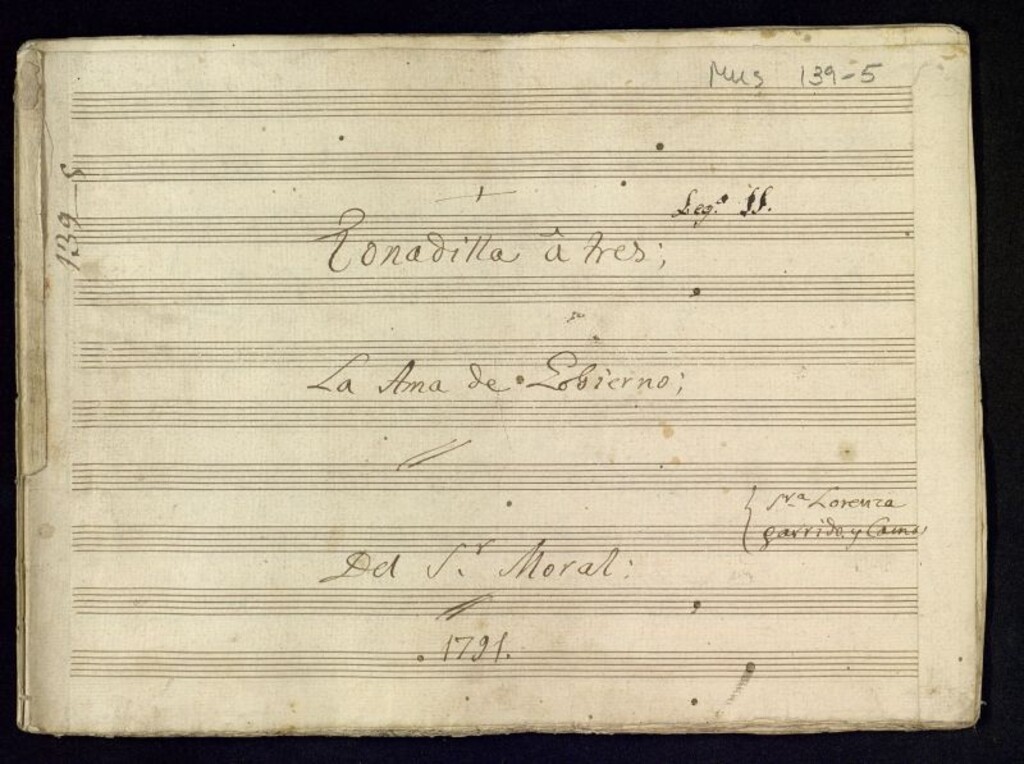 Mus 139-5
139-5
Leg.º 11.
Tonadilla â tres;
La Ama de Gobierno;
Sr.ª Lorenza
garrido, y Camas
Del S.r Moral:
1791.